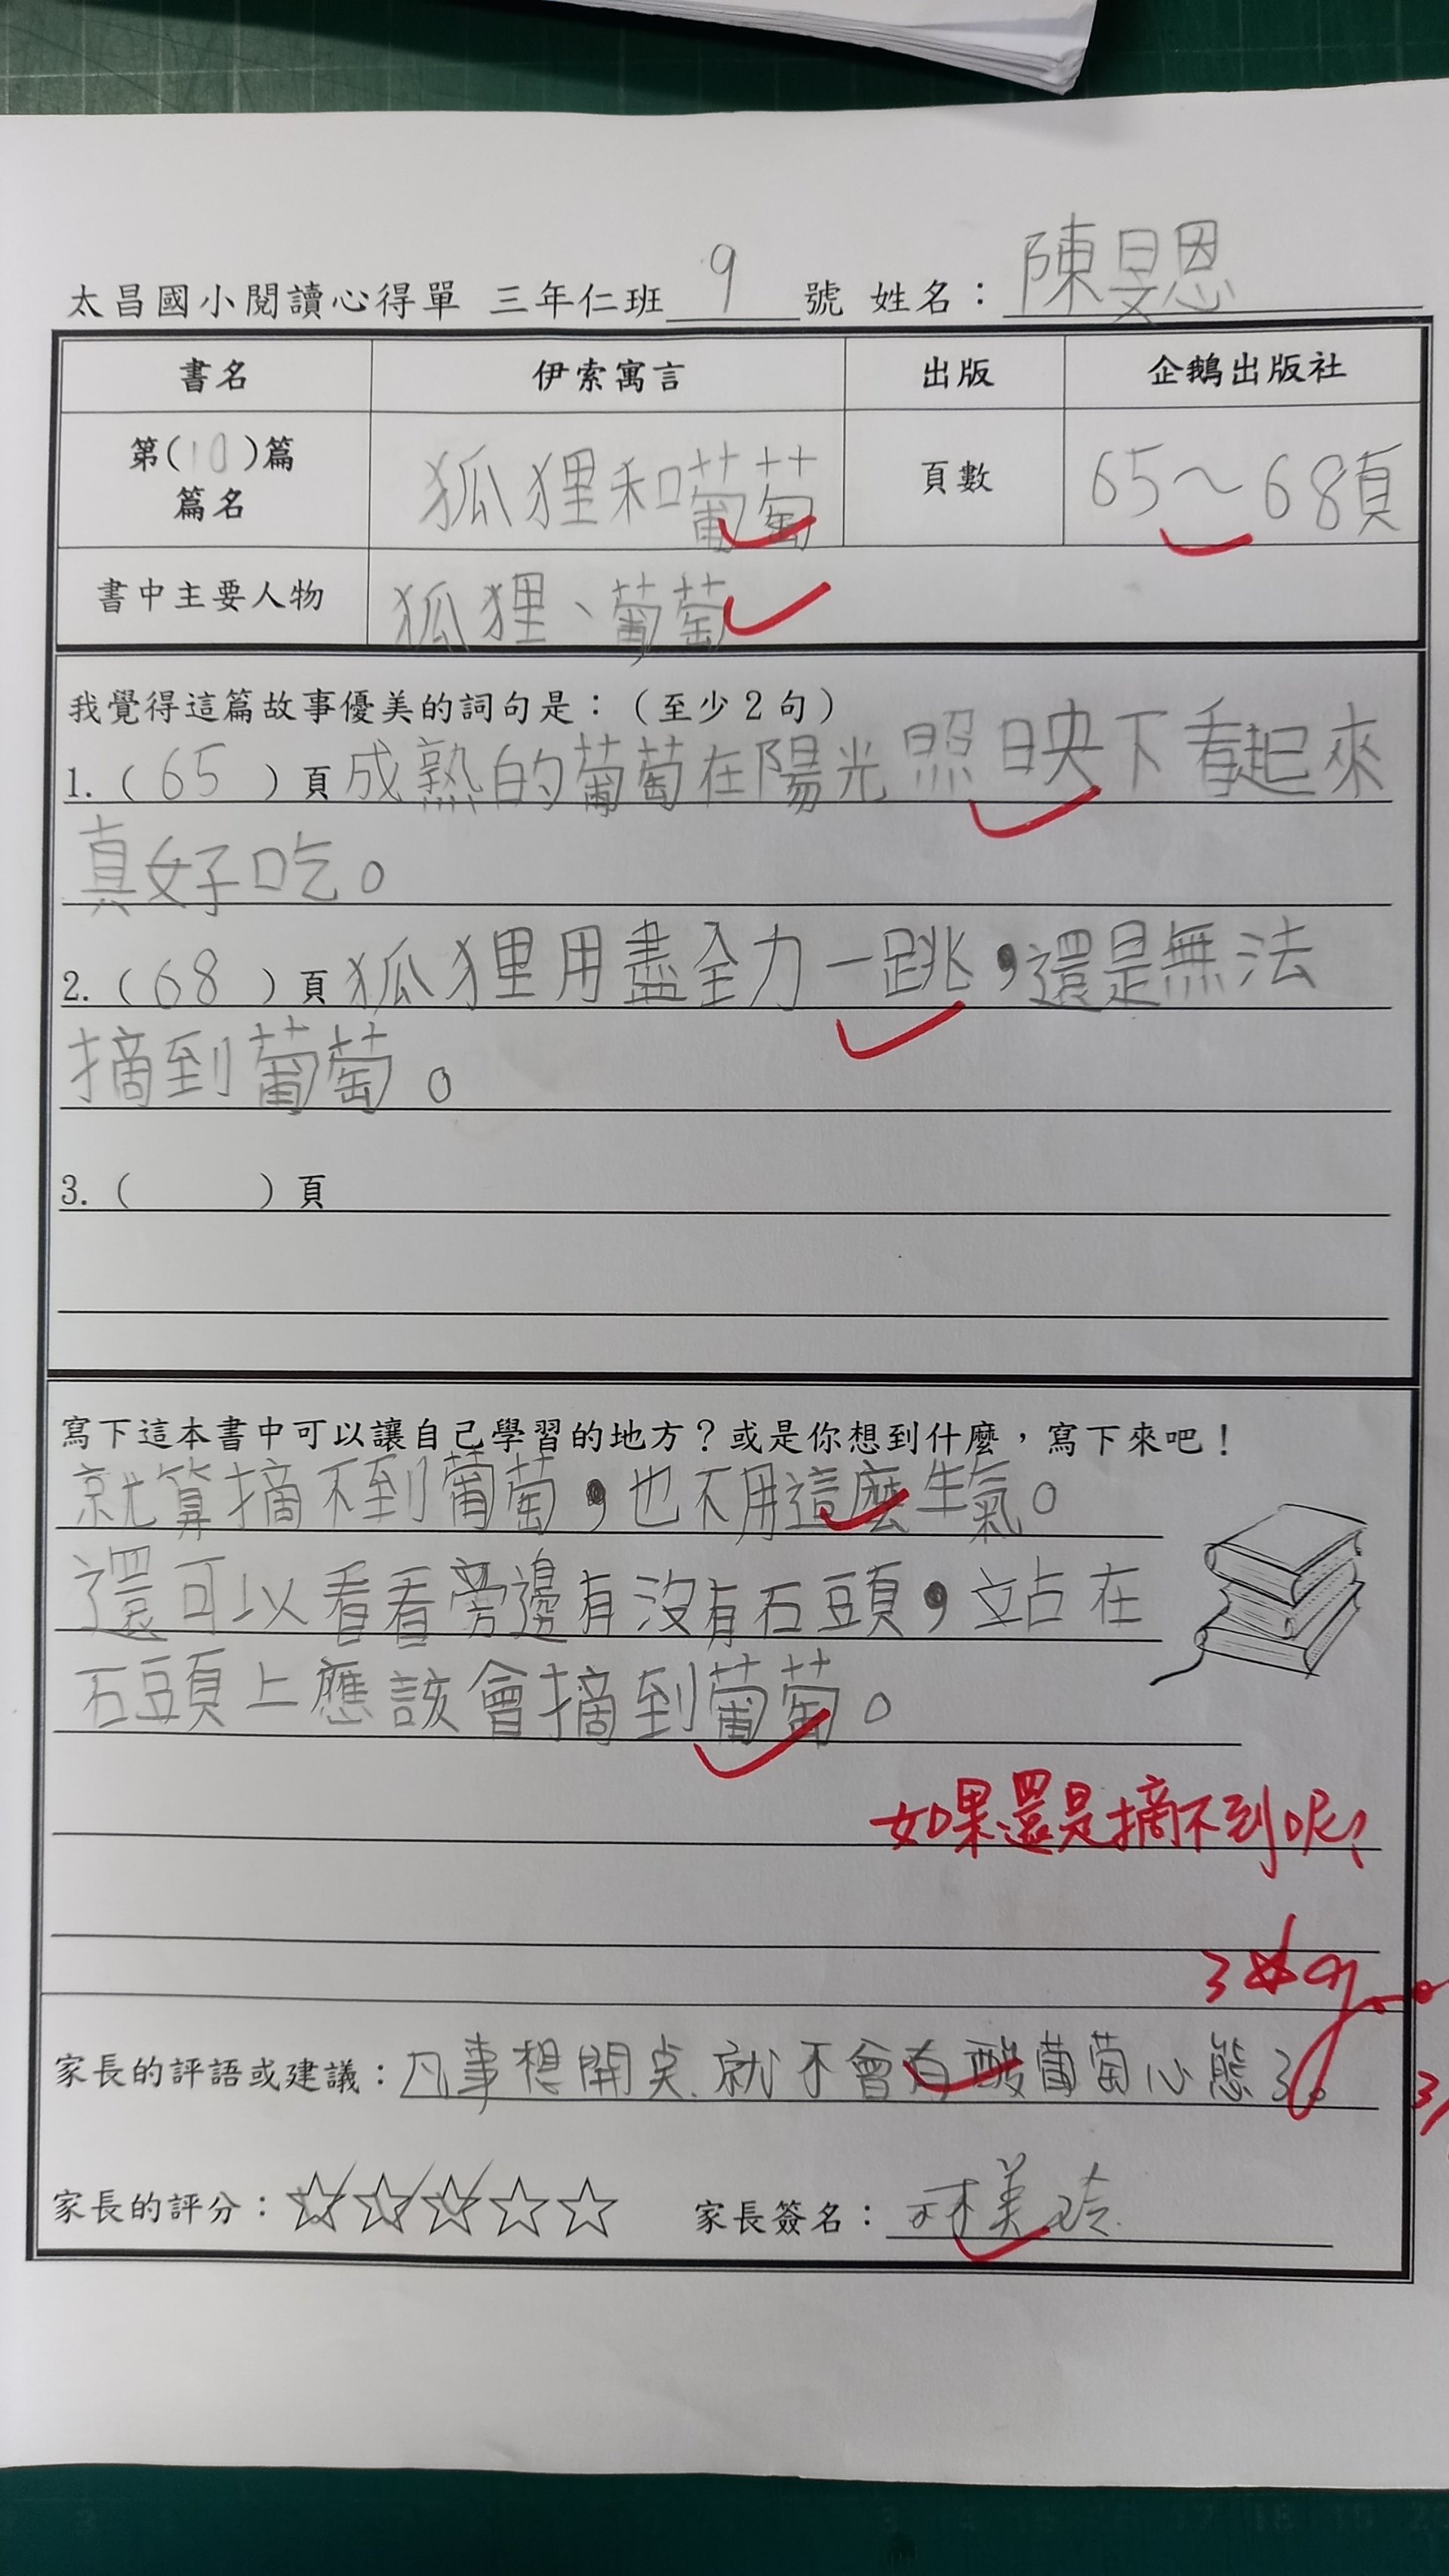 太昌國小閱讀心得單 三年仁班 9 號 姓名：陳旻恩
書名 伊索寓言 出版 企鵝出版社
第(10)篇
篇名 狐狸和葡萄 頁數 65~68頁
書中主要人物 狐狸、葡萄
我覺得這篇故事優美的詞句是：（至少2句）
1.（65）頁 成熟的葡萄在陽光照映下看起來
真好吃。
2.（68）頁 狐狸用盡全力一跳，還是無法
摘到葡萄。
3.（ ）頁
寫下這本書中可以讓自己學習的地方？或是你想到什麼，寫下來吧！
就算摘不到葡萄，也不用這麼生氣。
還可以看看旁邊有沒有石頭，站在
石頭上應該會摘到葡萄。
如果還是摘不到呢？
3
家長的評語或建議：凡事想開点.就不會有酸葡萄心態了。
家長的評分：☆☆☆☆☆ 家長簽名：林美玲